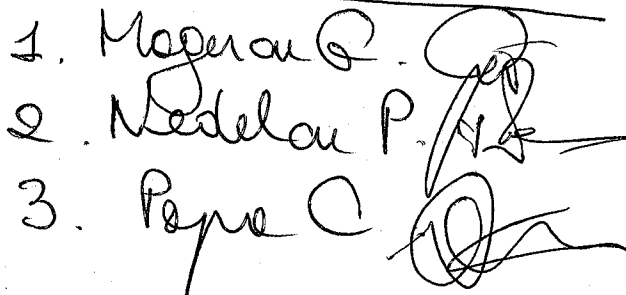 1. Mogeran G.
2. Nedelcu P.
3. Popa C